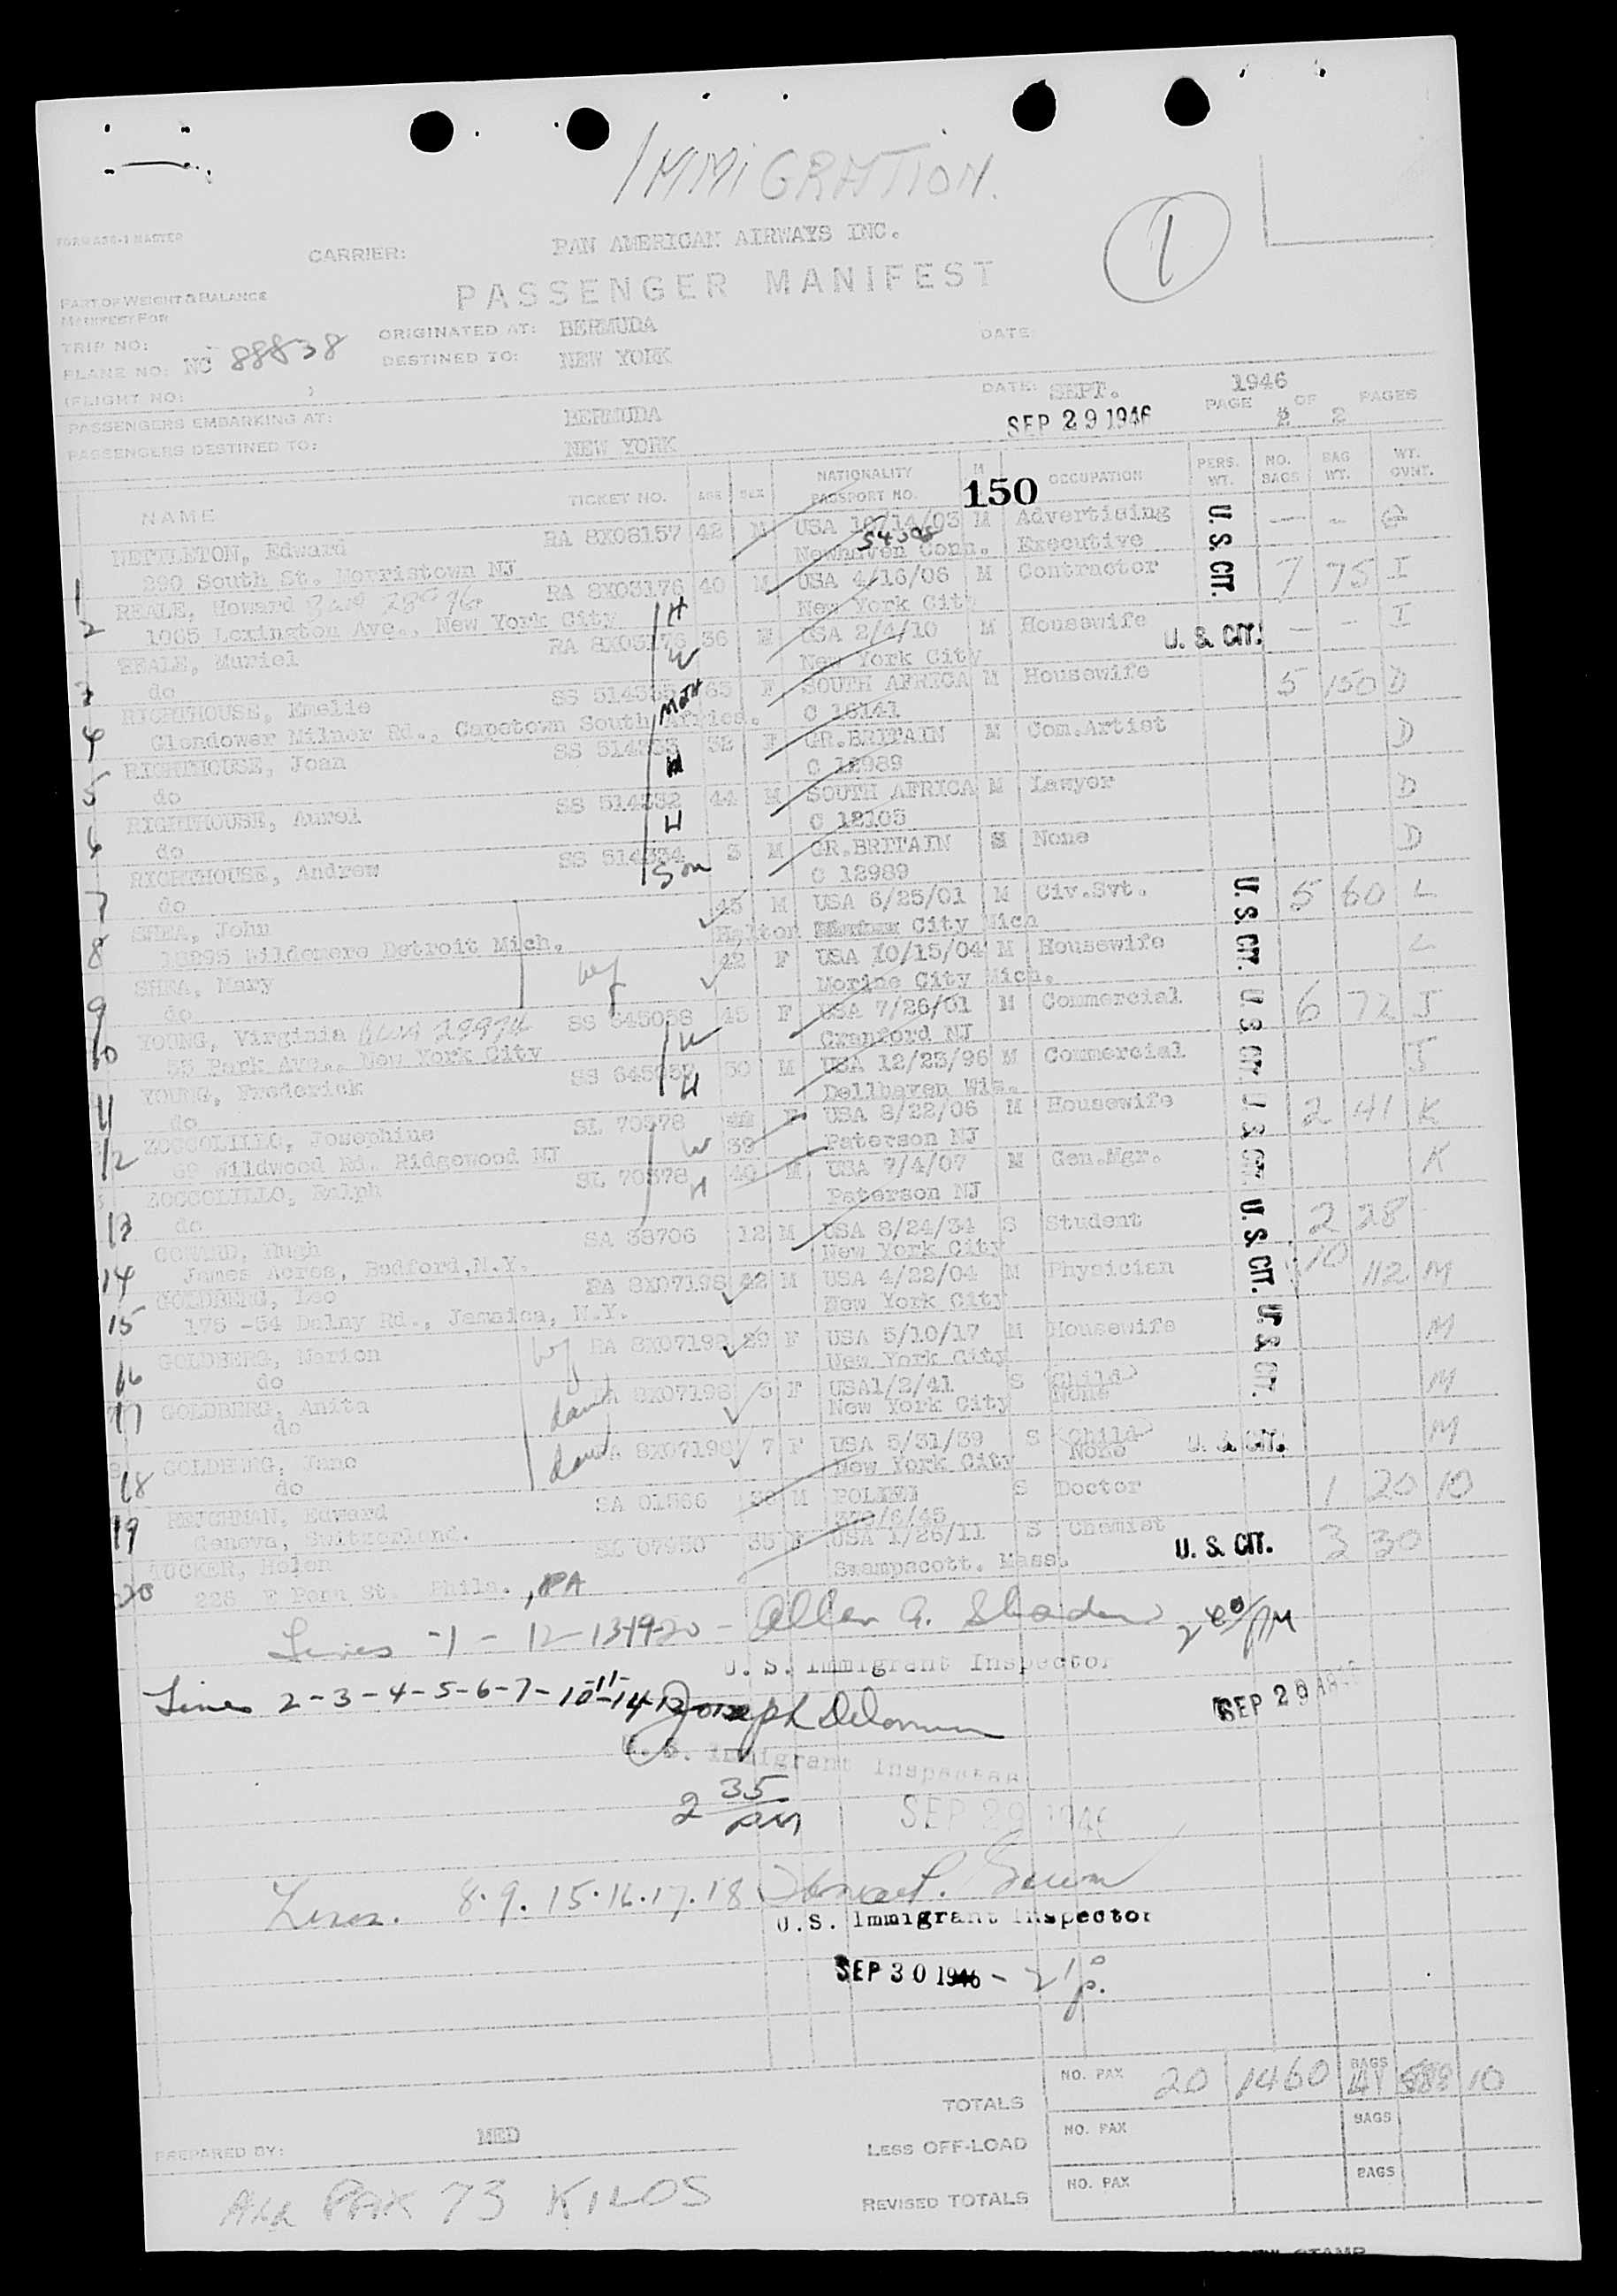 IMMIGRATION.
FORM 436-1 MASTER
CARRIER: PAN AMERICAN AIRWAYS INC.
1
PASSENGER MANIFEST
PART OF WEIGHT & BALANCE
MANIFEST FOR
TRIP NO:
ORIGINATED AT: BERMUDA
DATE:
PLANE NO: NC 88838
DESTINED TO: NEW YORK
(FLIGHT NO: )
DATE: SEPT. 1946
PASSENGERS EMBARKING AT: BERMUDA
SEP 29 1946
PAGE 2 OF 2 PAGES
PASSENGERS DESTINED TO: NEW YORK
NAME TICKET NO. AGE SEX NATIONALITY PASSPORT NO. M 150 OCCUPATION PERS. WT. NO. BAGS BAG WT. WT. GVNT.
1 NETTLETON, Edward RA 8X08157 42 M USA 10/14/03 M Advertising U.S. CIT. — —
290 South St. Morristown NJ Newhaven Conn. Executive
2 BEALE, Howard RA 8X03176 40 M USA 4/16/06 M Contractor 7 75 I
1065 Lexington Ave., New York City H New York City
3 BEALE, Muriel RA 8X03176 36 USA 2/4/10 M Housewife U. S. CIT. — — I
do W New York City
4 RIGHTHOUSE, Emelie 65 F SOUTH AFRICA M Housewife 5 150 D
Glendower Milner Rd., Capetown South Africa. Moth C 16141
5 RIGHTHOUSE, Joan SS 514333 32 F GR.BRITAIN M Com.Artist D
do C 12989
6 RIGHTHOUSE, Aurel SS 514332 44 M SOUTH AFRICA M Lawyer D
do H C 12105
7 RIGHTHOUSE, Andrew SS 514334 3 M GR.BRITAIN S None D
do Son C 12989
8 SHEA, John 45 M USA 6/25/01 M Civ.Svt. U.S. CIT. 5 60 L
18295 Wildemere Detroit Mich, City Mich
9 SHEA, Mary wf 42 F USA 10/15/04 M Housewife L
do Morine City Mich.
10 YOUNG, Virginia SS 545058 45 F USA 7/26/01 M Commercial U.S. CIT. 6 72 J
55 Park Ave., New York City W Cranford NJ
11 YOUNG, Frederick 50 M USA 12/25/96 M Commercial J
do H Dellhaven Wis.
12 ZOCCOLILLO, Josephine SL 70378 39 F USA 8/22/06 M Housewife U.S. CIT. 2 41 K
69 Wildwood Rd. Ridgewood NJ W Paterson NJ
13 ZOCCOLILLO, Ralph SL 70378 H 40 M USA 7/4/07 M Gen.Mgr. K
do Paterson NJ
14 Hugh SA 38706 12 M USA 8/24/34 S Student U.S. CIT. 2 28
James Acres, Bedford,N.Y. New York City
15 GOLDBERG, Leo RA 8X07198 42 M USA 4/22/04 M Physician 10 112 M
175 -54 Dalny Rd., Jamaica, N.Y. New York City
16 GOLDBERG, Marion wf RA 8X07198 29 F USA 5/10/17 M Housewife U.S. CIT. M
do New York City
17 GOLDBERG, Anita dau RA 8X07198 5 F USA1/2/41 S Child M
do New York City None
18 GOLDBERG, Jane dau RA 8X07198 7 F USA 5/31/39 S Child U. S. CIT. M
do New York City None
19 Edward SA 01566 M S Doctor 1 20 10
Geneva, Switzerland.
20 TUCKER, Helen SL 07950 35 F USA 1/26/11 S Chemist U. S. CIT. 3 30
228 E Penn St. Phila. , PA Swampscott. Mass.
Lines -1 - 12-13-19-20 - Allen G. 2 00/PM
U. S. Immigrant Inspector
Lines 2-3-4-5-6-7-10-11-14 Joseph
SEP 29 1946
U. S. Immigrant Inspector
2 35 PM
SEP 29 1946
Lines. 8.9.15.16.17.18
U.S. Immigrant Inspector
SEP 30 1946 - 2 10 p.
TOTALS NO. PAX 20 1460 BAGS 41 588 10
LESS OFF-LOAD NO. PAX BAGS
PREPARED BY: MED
REVISED TOTALS NO. PAX BAGS
PAX 73 KILOS